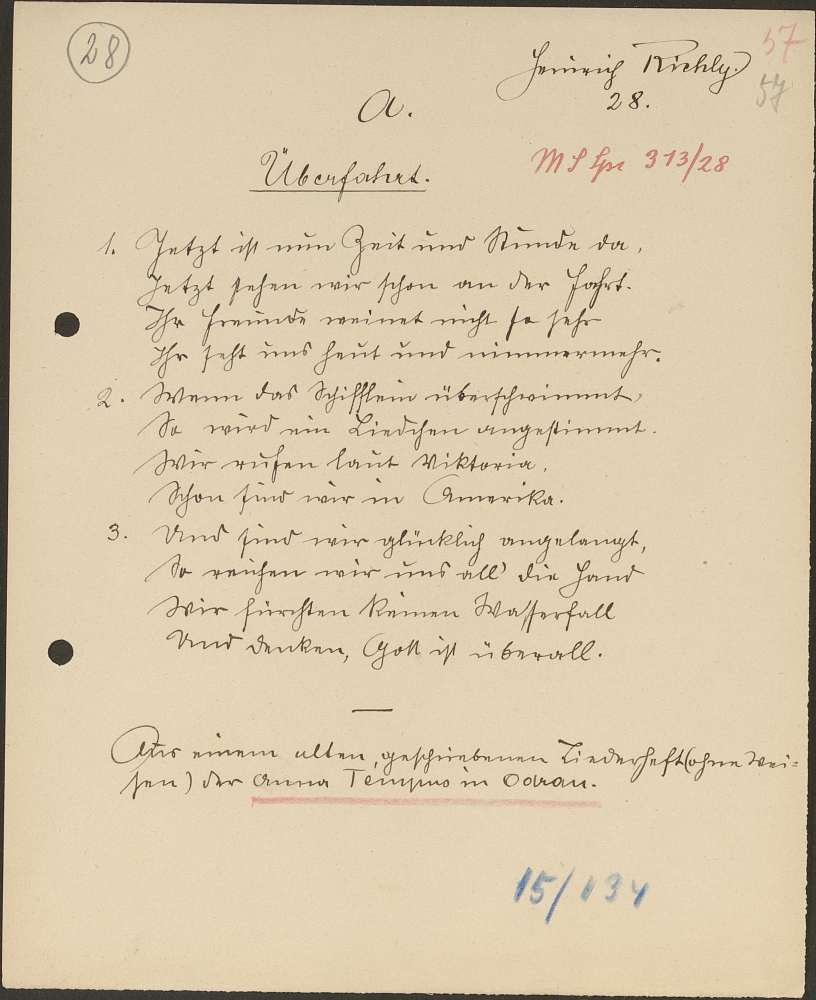 28
Heinrich Richly.
57
28.
57
A.
Überfahrt.
313/28
1. Jetzt ist nun Zeit und Stunde da,
Jetzt stehen wir schon an der Fahrt.
Ihr Freunde weinet nicht so sehr
Ihr seht uns heut und nimmermehr.
2. Wenn das Schifflein überschwimmt,
So wird ein Liedchen angestimmt.
Wir rufen laut Viktoria,
Schon sind wir in Amerika.
3. Und sind wir glücklich angelangt,
So reichen wir uns all' die Hand
Wir fürchten keinen Wasserfall
Und denken, Gott ist überall.
Aus einem alten, geschriebenen Liederheft (ohne Wei-
sen) der Anna in Odrau.
15/134